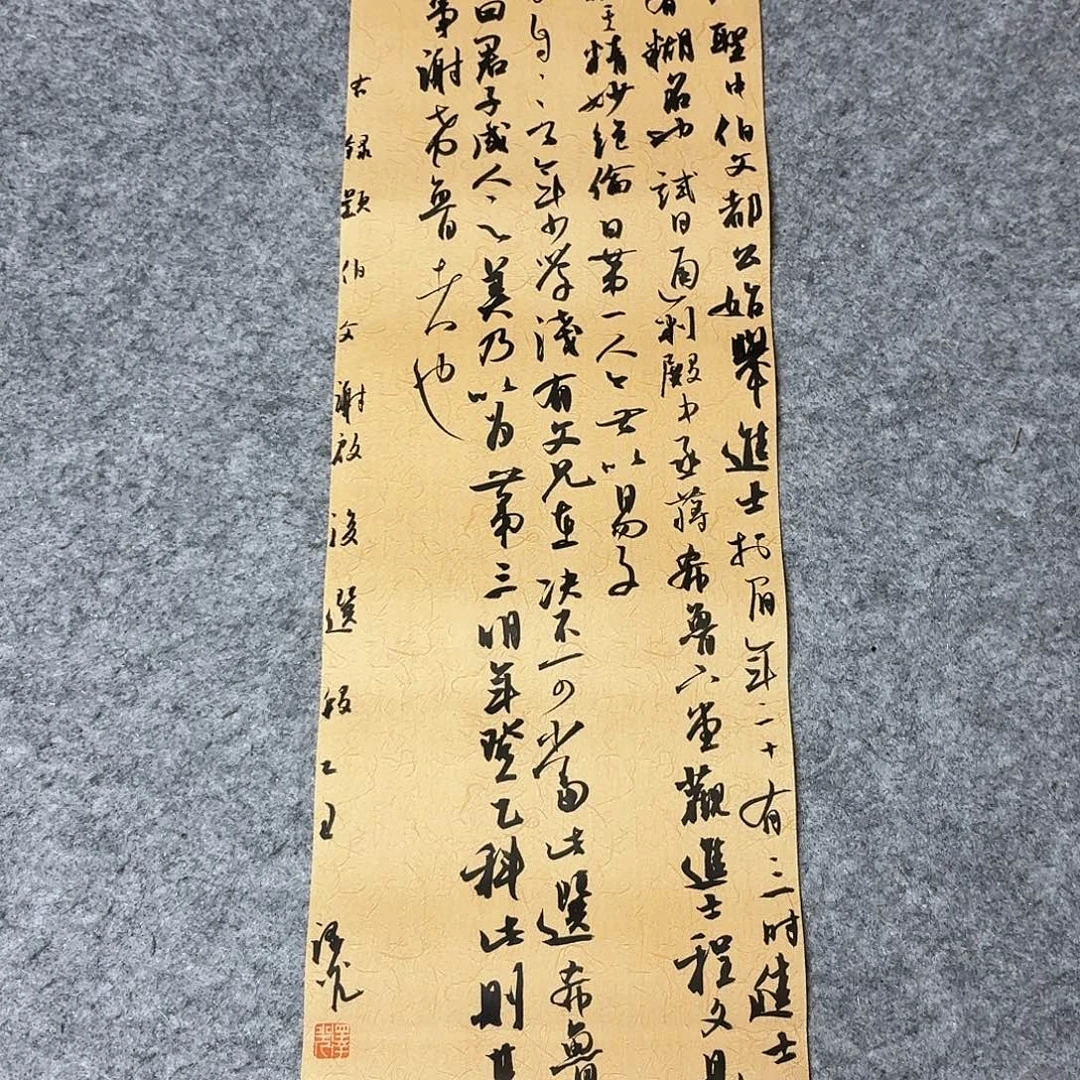 聖中伯父都公始舉進士於眉年二十有三時進士
有糊名也試日通判殿中丞蔣希魯下堂觀進士程文見
精妙絕倫曰第一人無以易子
年少學淺有父兄在決不可當此選希魯
曰君子成人之美乃以為第三明年登乙科此則其
謝希魯也
右錄題伯父謝啟後選段